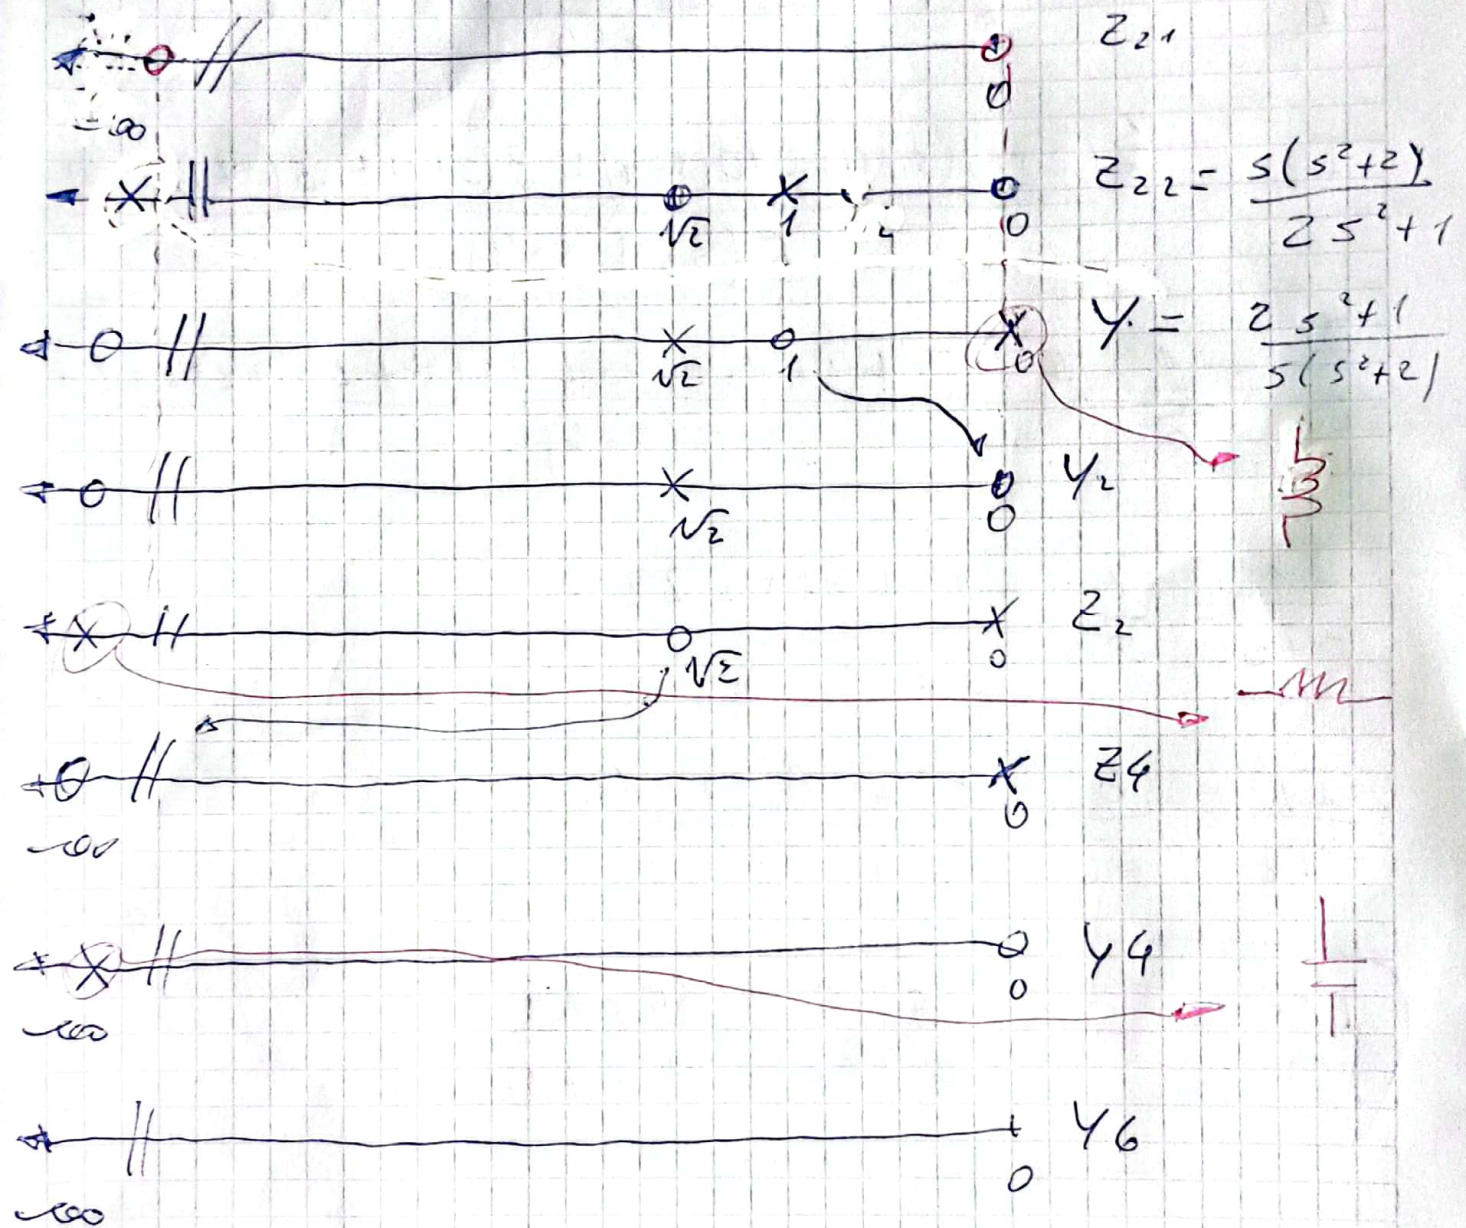 Z21
0
-∞
Z22 = s(s²+2) / 2s²+1
√2 1 0
Y = 2s²+1 / s(s²+2)
√2 1 0
Y2
√2 0
Z2
√2 0
Z4
0
Y4
0
Y6
0